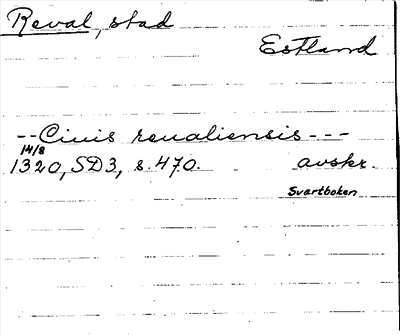 Reval, stad
Estland
-- Ciuis reualiensis ---
14/8
1320, SD3, s. 470. avskr.
Svartboken